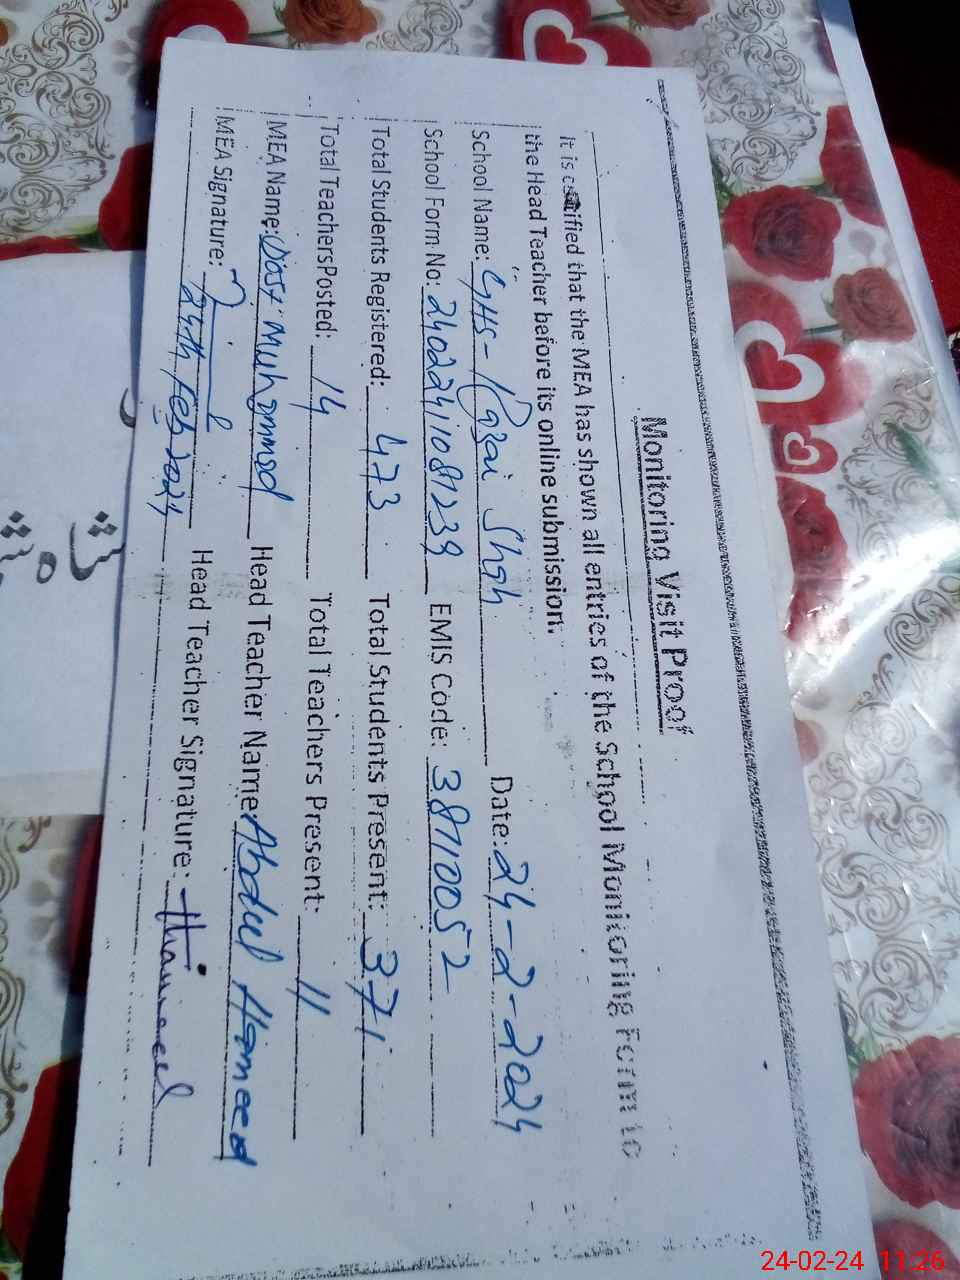 Monitoring Visit Proof
It is certified that the MEA has shown all entries of the School Monitoring Form to
the Head Teacher before its online submission.
School Name: GHS- Razai Shah Date: 24-2-2024
School Form No: 24022410811239 EMIS Code: 38710052
Total Students Registered: 473 Total Students Present: 371
Total TeachersPosted: 14 Total Teachers Present: 11
MEA Name: Dost Muhammad Head Teacher Name: Abdul Hameed
MEA Signature: Head Teacher Signature: Hameed
24th Feb 2024
24-02-24 11:26